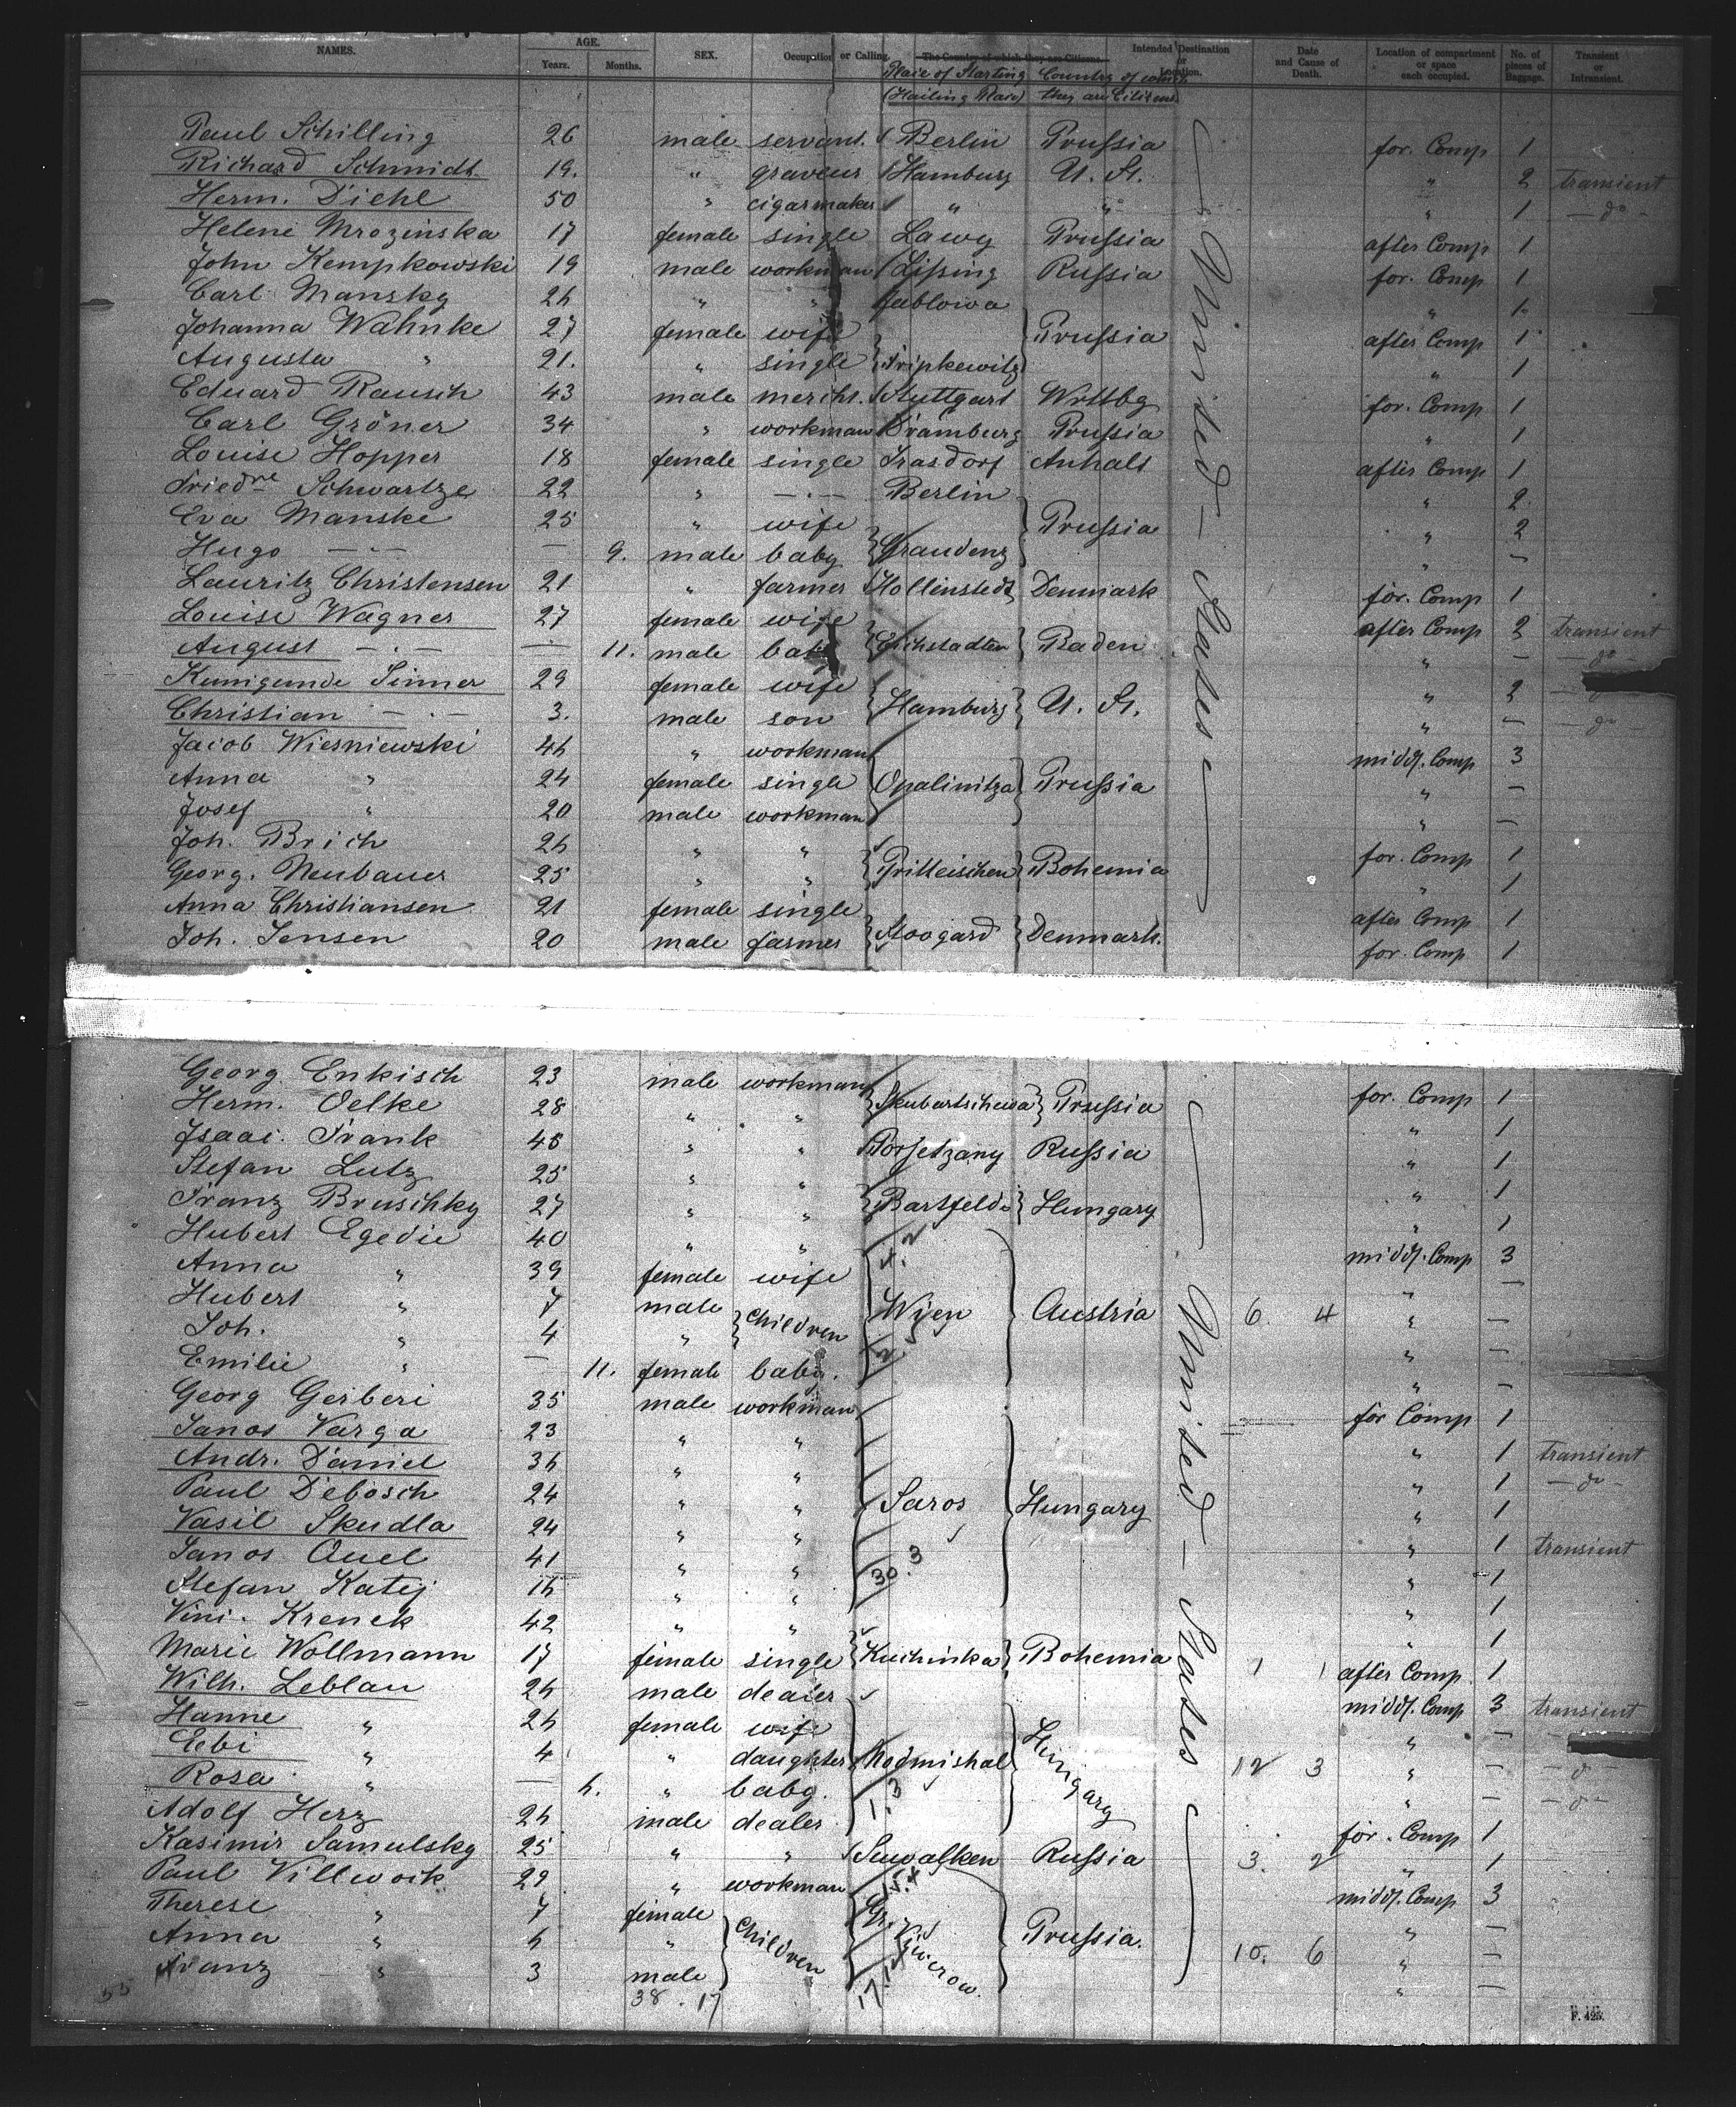 NAMES. AGE. Years. Months. SEX. Occupation or Calling. The Country of which they are Citizens. Intended Destination or Location. Date and Cause of Death. Location of compartment or space each occupied. No. of pieces of Baggage. Transient or Intransient.
Place of Starting Country of which
(Hailing Place) they are Citizens
Paul Schilling 26 male servant. Berlin Prussia for. Comp 1
Richard Schmidt 19. " graveur Hamburg U. St. " 2 transient
Herm. Diehl 50 " cigarmaker " " " 1 — do -
Helene Mrozinska 17 female single Lawy Prussia after Comp 1
John Kempkowski 19 male workman Lissing Russia for. Comp 1
Carl Mansky 26 " " Jablowa " 1
Johanna Wahnke 27 female wife Prussia after Comp 1
Augusta " 21. " single Tripkewitz " 1
Eduard Rausch 43 male mercht. Stuttgart Wrttbg for. Comp 1
Carl Gröner 34 " workman Dramburg Prussia " 1
Louise Hopper 18 female single Trasdorf Anhalt after Comp 1
Friedne Schwartze 22 " — " — Berlin " 2.
Eva Manske 25 " wife Prussia " 2
Hugo — " — — 9. male baby Graudenz " —
Lauritz Christensen 21 " farmer Hollenstedt Denmark for. Comp 1
Louise Wagner 27 female wife after Comp 2 transient
August — " — — 11. male baby Eichstadten Baden " — — do -
Kunigunde Sinner 29 female wife " 2 —
Christian — " — 3. male son Hamburg U. St. " — — do -
Jacob Wiesniewski 46 " workman midd. Comp 3
Anna " 24 female single Opalinitza Prussia " —
Josef " 20 male workman " —
Joh. Brich 26 " " for. Comp 1
Georg. Neubauer 25 " " Pritteischen Bohemia " 1
Anna Christiansen 21 female single after Comp 1
Joh. Jensen 20 male farmer Stoogard Denmark. for. Comp 1
— United — States —
Georg Enkisch 23 male workman for. Comp 1
Herm. Oelke 28 " " Skubartschewa Prussia " 1
Isaac. Frank 48 " " Porsetzany Russia " 1
Stefan Lutz 25 " " " 1
Franz Bruschky 27 " " Bartfelde Hungary " 1
Hubert Egedie 40 " " midd. Comp 3
Anna " 39 female wife " —
Hubert " 7 male Children Wien Austria 6. 4 " —
Joh. " 4 " " —
Emilie " — 11. female baby. " —
Georg Gerberi 35 male workman for Comp 1
Janos Varga 23 " " " 1 transient
Andr. Daniel 36 " " " 1 — do -
Paul Debosch 24 " " Saros Hungary " 1
Vasil Skudla 24 " " " 1 transient
Janos Auel 41 " " 30. 3 " 1
Stefan Katij 16 " " " 1
Vini. Krenek 42 " " " 1
Marie Wollmann 17 female single Kuchinka Bohemia 1 1 after Comp 1
Wilh. Leblau 26 male dealer midd. Comp 3 transient
Hanne " 26 female wife " — —
Eebi " 4 " daughter Nedmishal Hungary 12 3 " — — do -
Rosa " — 6. " baby. 1. 3 " — — do -
Adolf Herz 26 male dealer for. Comp 1
Kasimir Samulsky 25 " " Suwalken Russia 3. 2 " 1
Paul Villwock 29 " workman midd. Comp 3
Therese " 7 female " —
Anna " 6 " Children Prussia. 10. 6 " —
Franz " 3 male " —
— United — States —
55 38 . 17
F. 425.